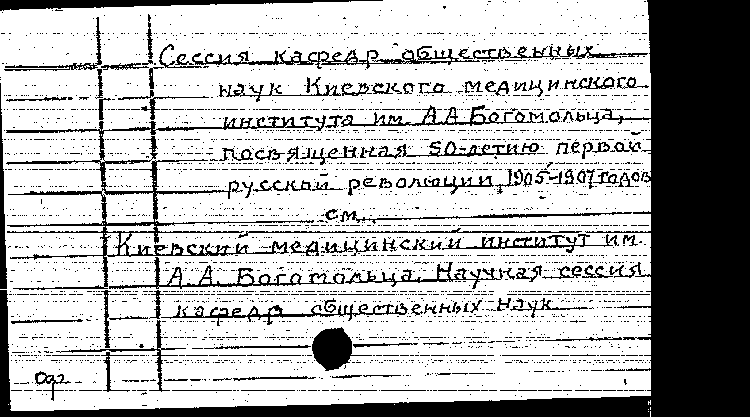 Сессия кафедр общественных
наук Киевского медицинского
института им. А.А. Богомольца,
посвященная 50-летию первой
русской революции, 1905-1907 годов
см.
Киевский медицинский институт им.
А.А. Богомольца. Научная сессия
кафедр общественных наук